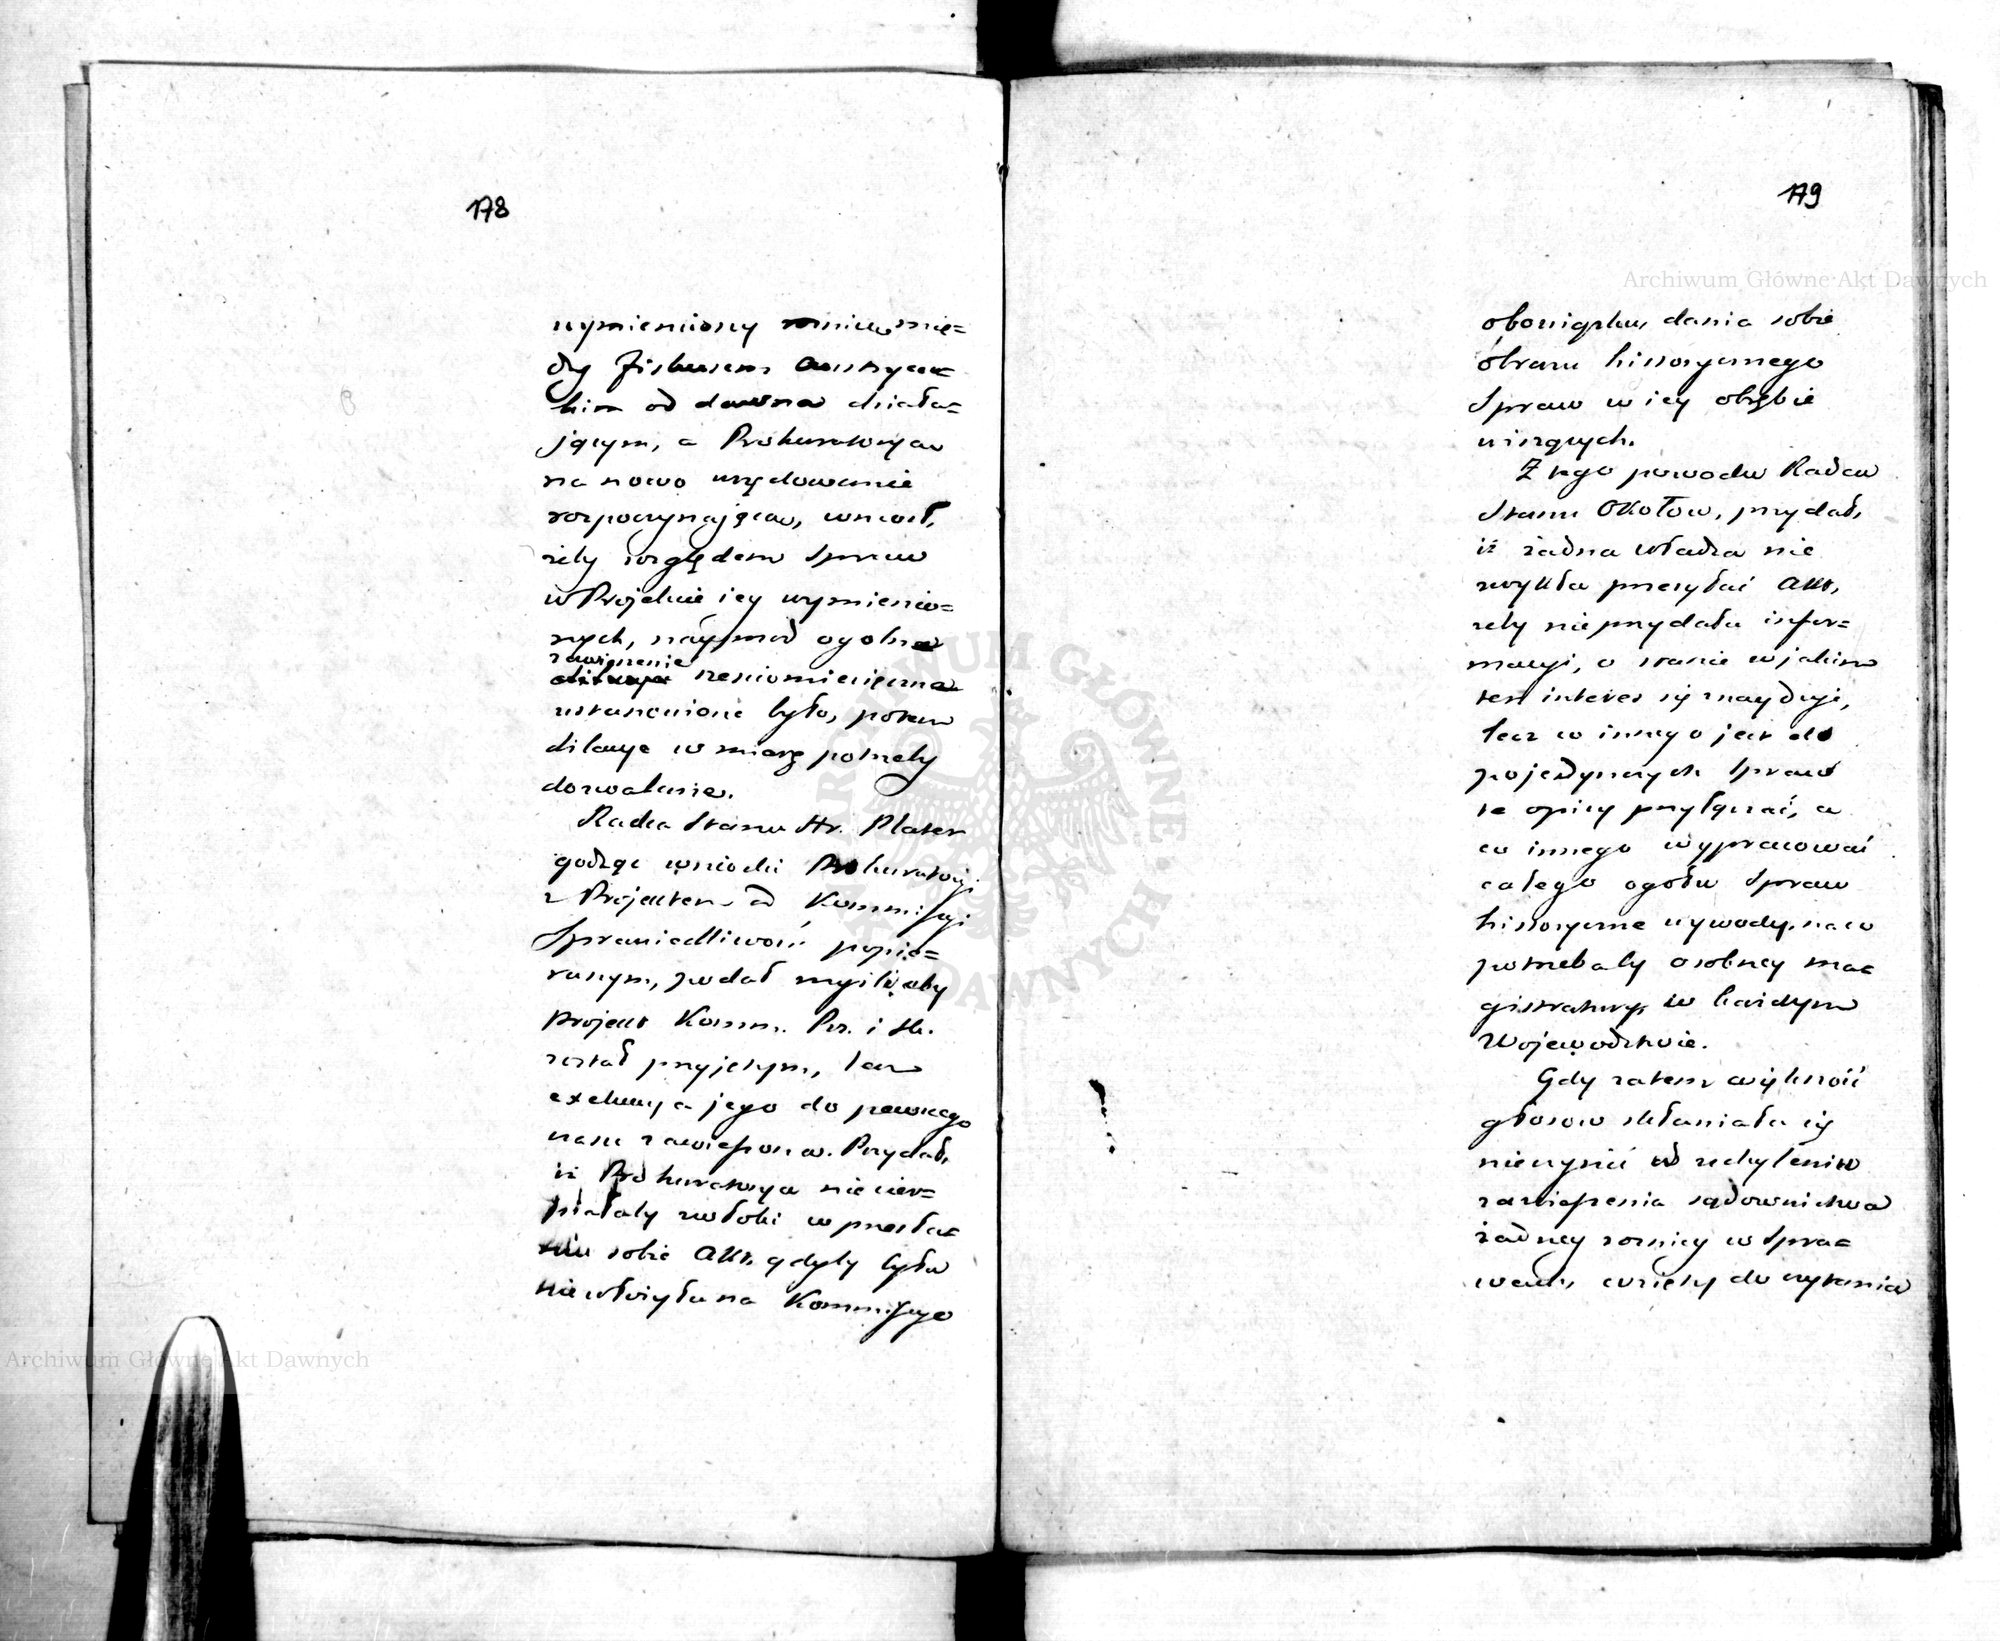 178
wymieniony mię=
dzy Fiskusem Austryac=
kim od dawna działa=
jącym, a Prokuratoryą
na nowo urzędowanie
rozpoczynaiącą, wniosł,
żeby względem Spraw
w Projekcie iey wymienio=
nych, nayprzod ogolne
zawieszenie
sześciomiesięczne
ustanowione było, potem
dilacye w miarę potrzeby
dozwalane.
Radca Stanu Hr. Plater
godząc wnioski Prokuratoryi
z Projektem od Kommissyi
Sprawiedliwości popie=
ranym, podał myśl, aby
Projekt Komm. Prz. i Sk.
został przyjętym, lecz
exekucya jego do pewnego
czasu zawieszona. Przydał,
iż Prokuratorya niecier=
piałaby zwłoki w przesła=
niu sobie Akt, gdyby była
niewłożyła na Kommissye
179
obowiązku, dania sobie
obrazu historycznego
Spraw w iey obrębie
wiszących.
Z tego powodu Radca
Stanu Okołow, przydał,
iż żadna władza nie
zwykła przesyłać Akt,
żeby nieprzydała infor=
macyi, o stanie w jakim
ten interes się znayduje,
lecz co innego jest do
pojedynczych Spraw
te opisy przyłączać, a
co innego wypracować
całego ogołu Spraw
historyczne wywody, na co
potrzebaby osobney ma=
gistratury, w każdym
Wojewodztwie.
Gdy zatem większość
głosow skłaniała się
nieczynić w uchyleniu
zawieszenia sądownictwa
żadney rożnicy w Spra=
wach, wzięty do czytania
Archiwum Główne Akt Dawnych
Archiwum Główne Akt Dawnych
ARCHIWUM GŁÓWNE AKT DAWNYCH